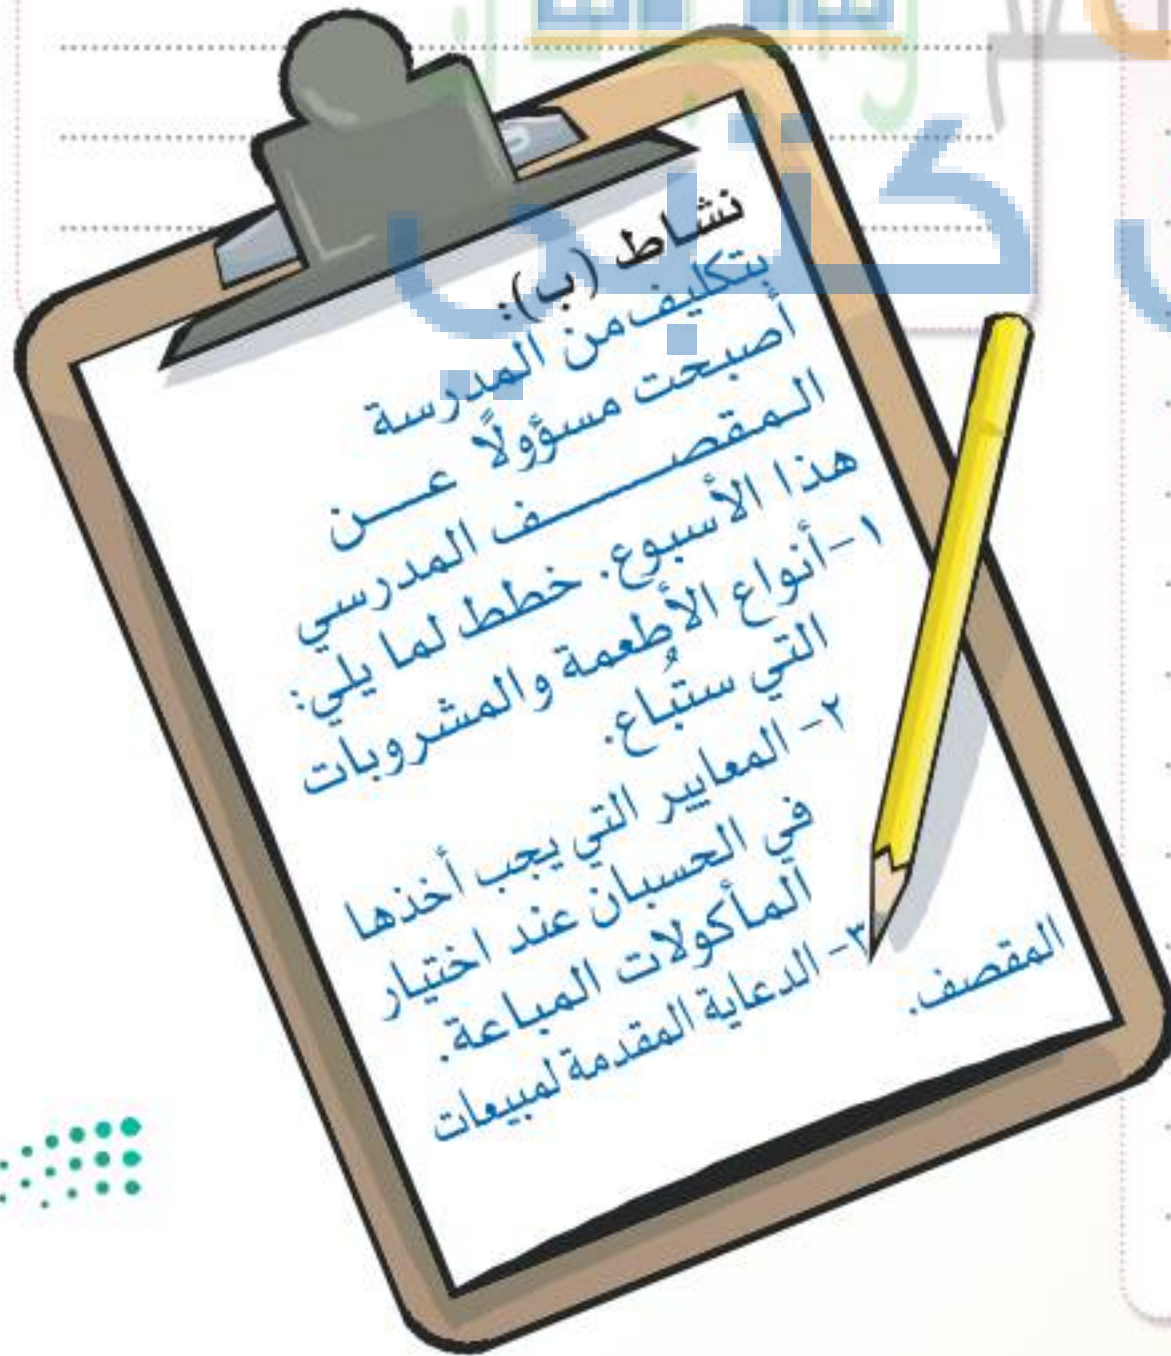 نشاط (ب):
بتكليف من المدرسة
أصبحت مسؤولًا عن
المقصف المدرسي
هذا الأسبوع. خطط لما يلي:
١- أنواع الأطعمة والمشروبات
التي ستُباع.
٢- المعايير التي يجب أخذها
في الحسبان عند اختيار
المأكولات المباعة.
٣- الدعاية المقدمة لمبيعات
المقصف.
كتبي